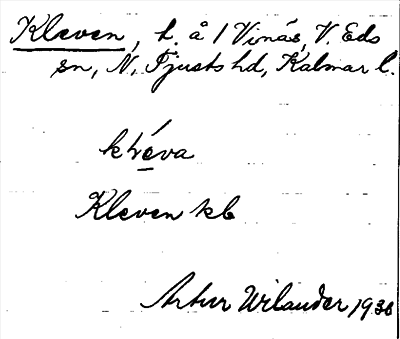 Kleven, t. å 1 Vinäs, V. Eds
sn, N. Tjusts hd, Kalmar l.
kléva
Kleven kb
Artur Wilander 1930